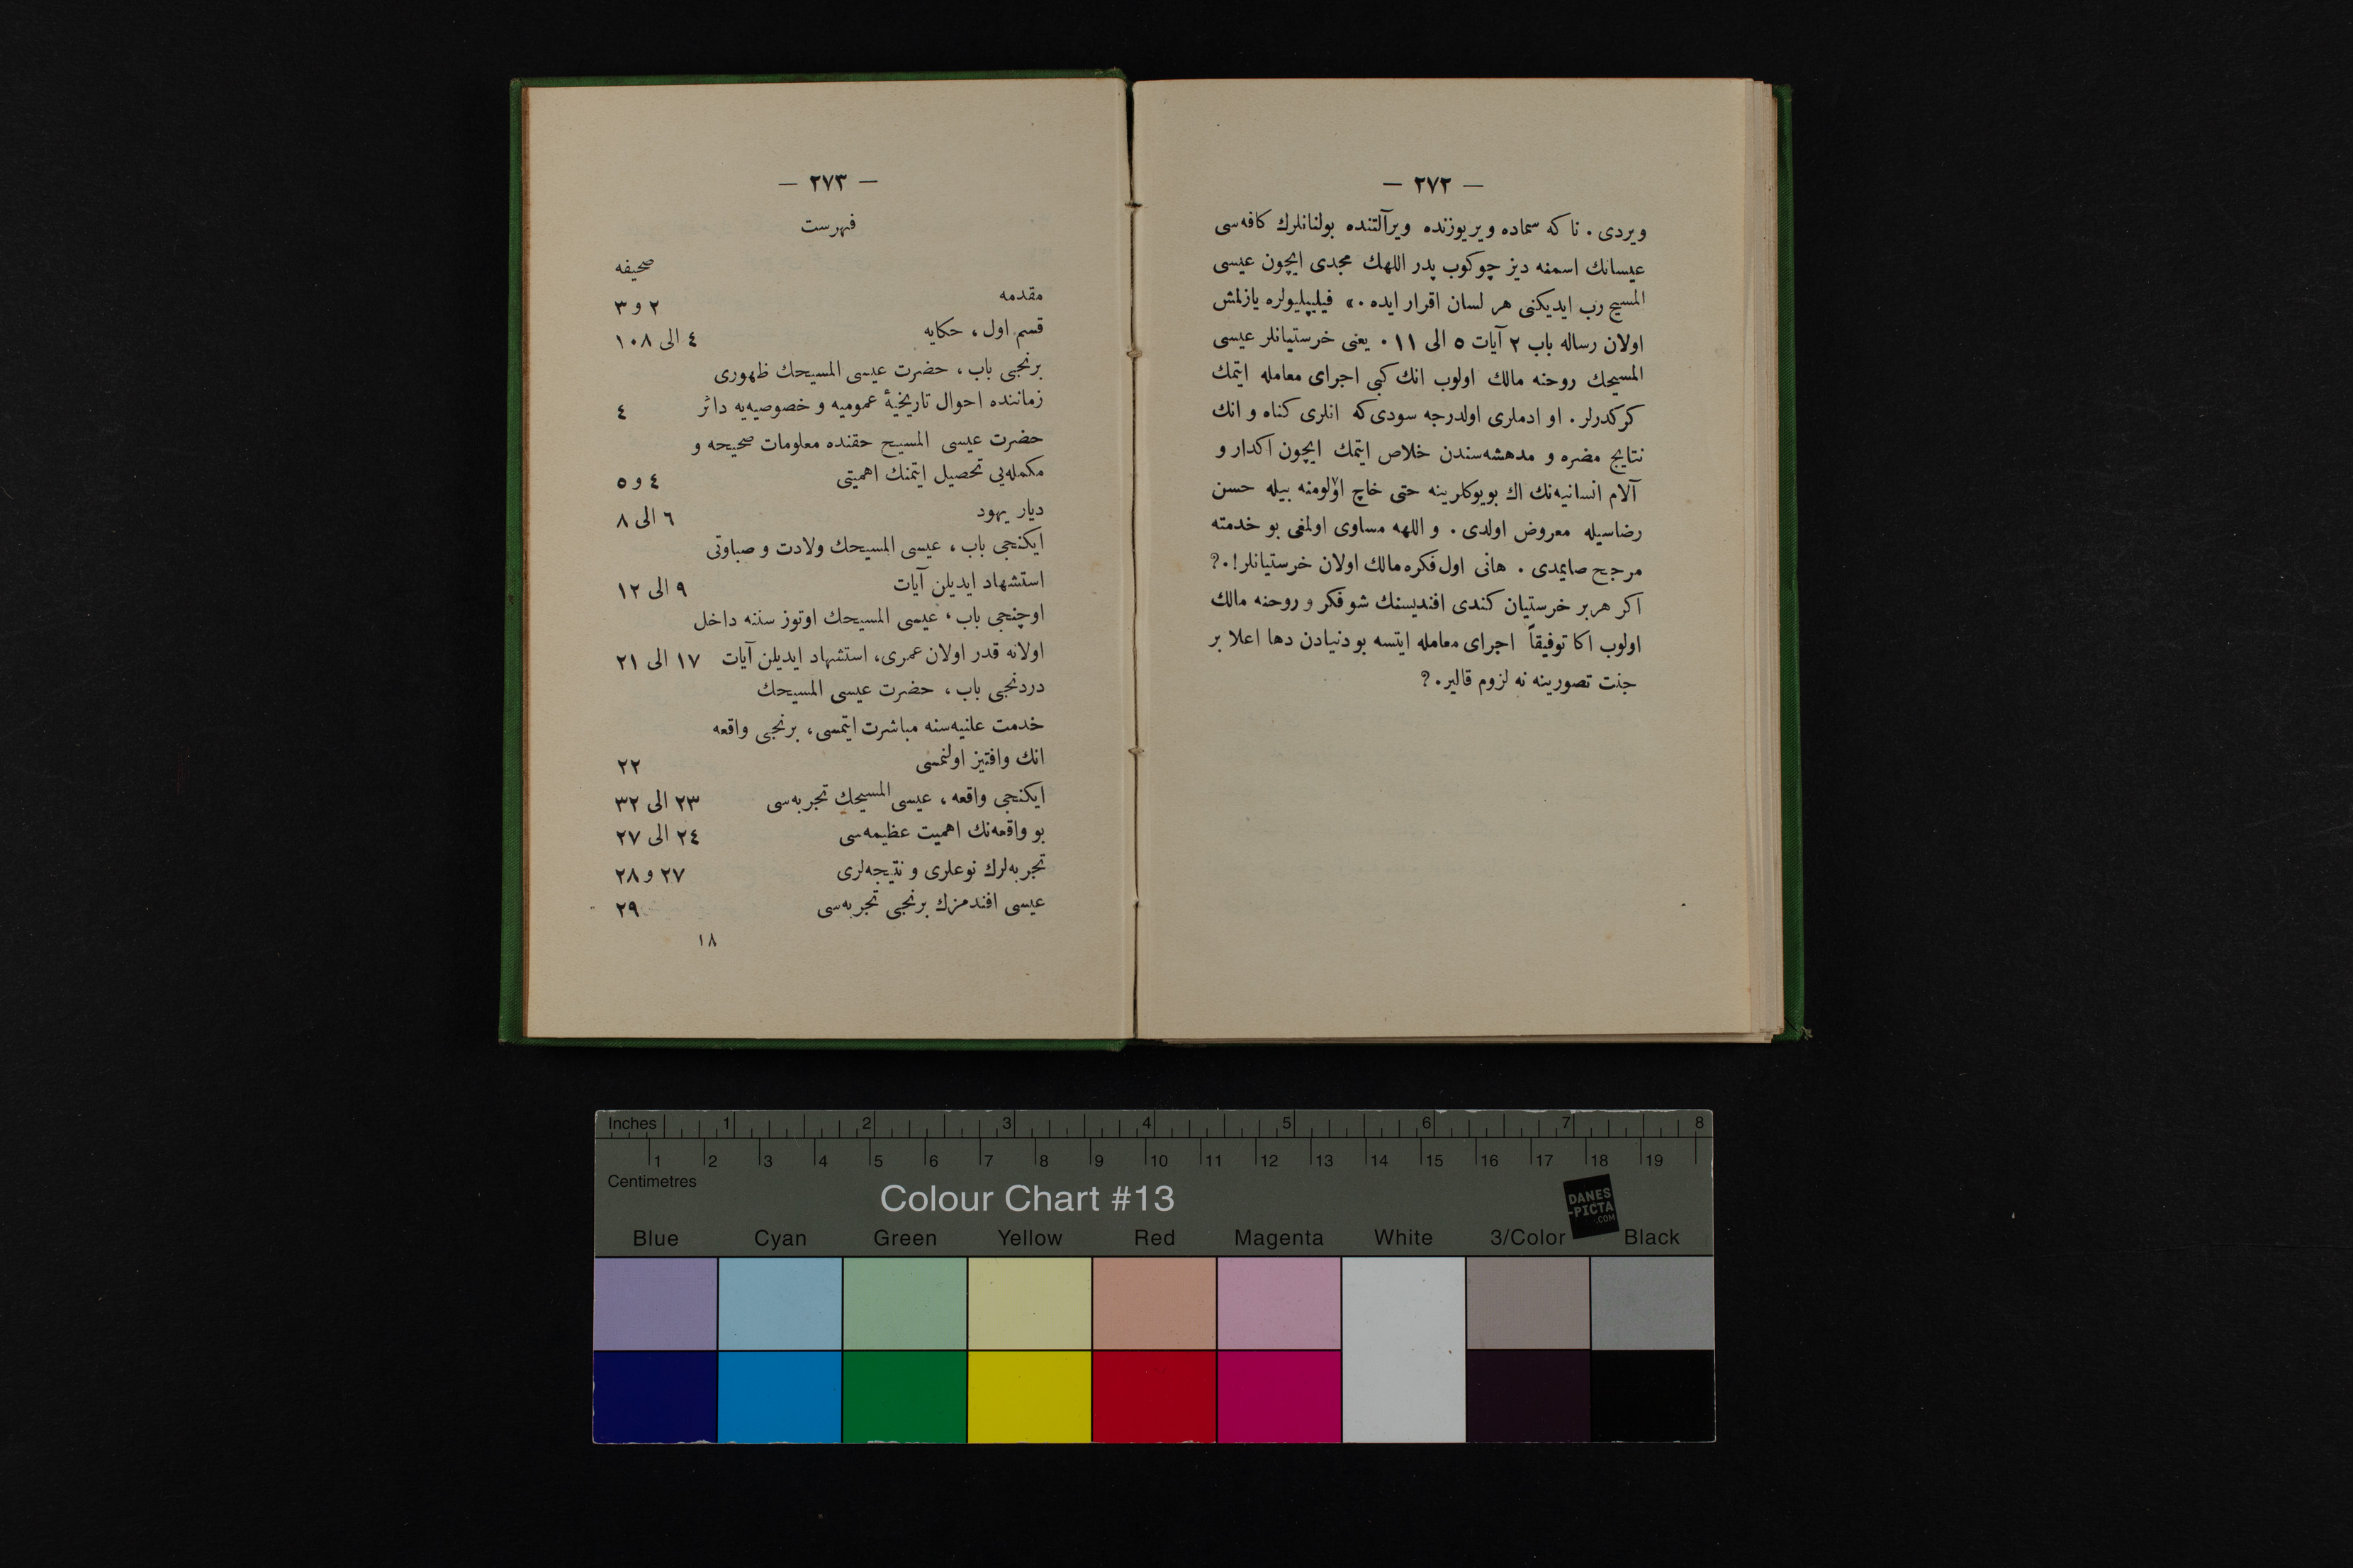 — ٢٧٢ —
ويردى . تا كه سماده ويريوزنده ويرآلتنده بولنانلرك كافه‌سى
عيسانك اسمنه ديز چوكوب پدر اللهك مجدى ايچون عيسى
المسيح رب ايديكنى هر لسان اقرار ايده .» فيليپليولره يازلمش
اولان رساله باب ٢ آيات ٥ الى ١١ . يعنى خرستيانلر عيسى
المسيحك روحنه مالك اولوب انك كبى اجراى معامله ايتمك
كركدرلر . او ادملرى اولدرجه سودى‌كه انلرى كناه و انك
نتايج مضره و مدهشه‌سندن خلاص ايتمك ايچون اكدار و
آلام انسانيه‌نك اك بويوكلرينه حتى خاچ اولومنه بيله حسن
رضاسيله معروض اولدى . و اللهه مساوى اولمغى بو خدمته
مرجح صايمدى . هانى اول فكره مالك اولان خرستيانلر !.؟
اكر هربر خرستيان كندى افنديسنك شو فكر و روحنه مالك
اولوب اكا توفيقاً اجراى معامله ايتسه بو دنيادن دها اعلا بر
جنت تصورينه نه لزوم قالير . ؟
— ٢٧٣ —
فهرست
صحيفه
مقدمه ٢ و ٣
قسم اول ، حكايه ٤ الى ١٠٨
برنجى باب ، حضرت عيسى المسيحك ظهورى
زماننده احوال تاريخيۀ عموميه و خصوصيه‌يه دائر ٤
حضرت عيسى المسيح حقنده معلومات صحيحه و
مكمله‌يى تحصيل ايتمنك اهميتى ٤ و ٥
ديار يهود ٦ الى ٨
ايكنجى باب ، عيسى المسيحك ولادت و صباوتى
استشهاد ايديلن آيات ٩ الى ١٢
اوچنجى باب ، عيسى المسيحك اوتوز سننه داخل
اولانه قدر اولان عمرى، استشهاد ايديلن آيات ١٧ الى ٢١
دردنجى باب ، حضرت عيسى المسيحك
خدمت علنيه‌سنه مباشرت ايتمسى، برنجى واقعه
انك وافتيز اولنمسى ٢٢
ايكنجى واقعه ، عيسى المسيحك تجربه‌سى ٢٣ الى ٣٢
بو واقعه‌نك اهميت عظيمه‌سى ٢٤ الى ٢٧
تجربه‌لرك نوعلرى و نتيجه‌لرى ٢٧ و ٢٨
عيسى افندمزك برنجى تجربه‌سى ٢٩
١٨
Inches 1 2 3 4 5 6 7 8
1 2 3 4 5 6 7 8 9 10 11 12 13 14 15 16 17 18 19
Centimetres
Colour Chart #13
DANES
-PICTA
.COM
Blue Cyan Green Yellow Red Magenta White 3/Color Black